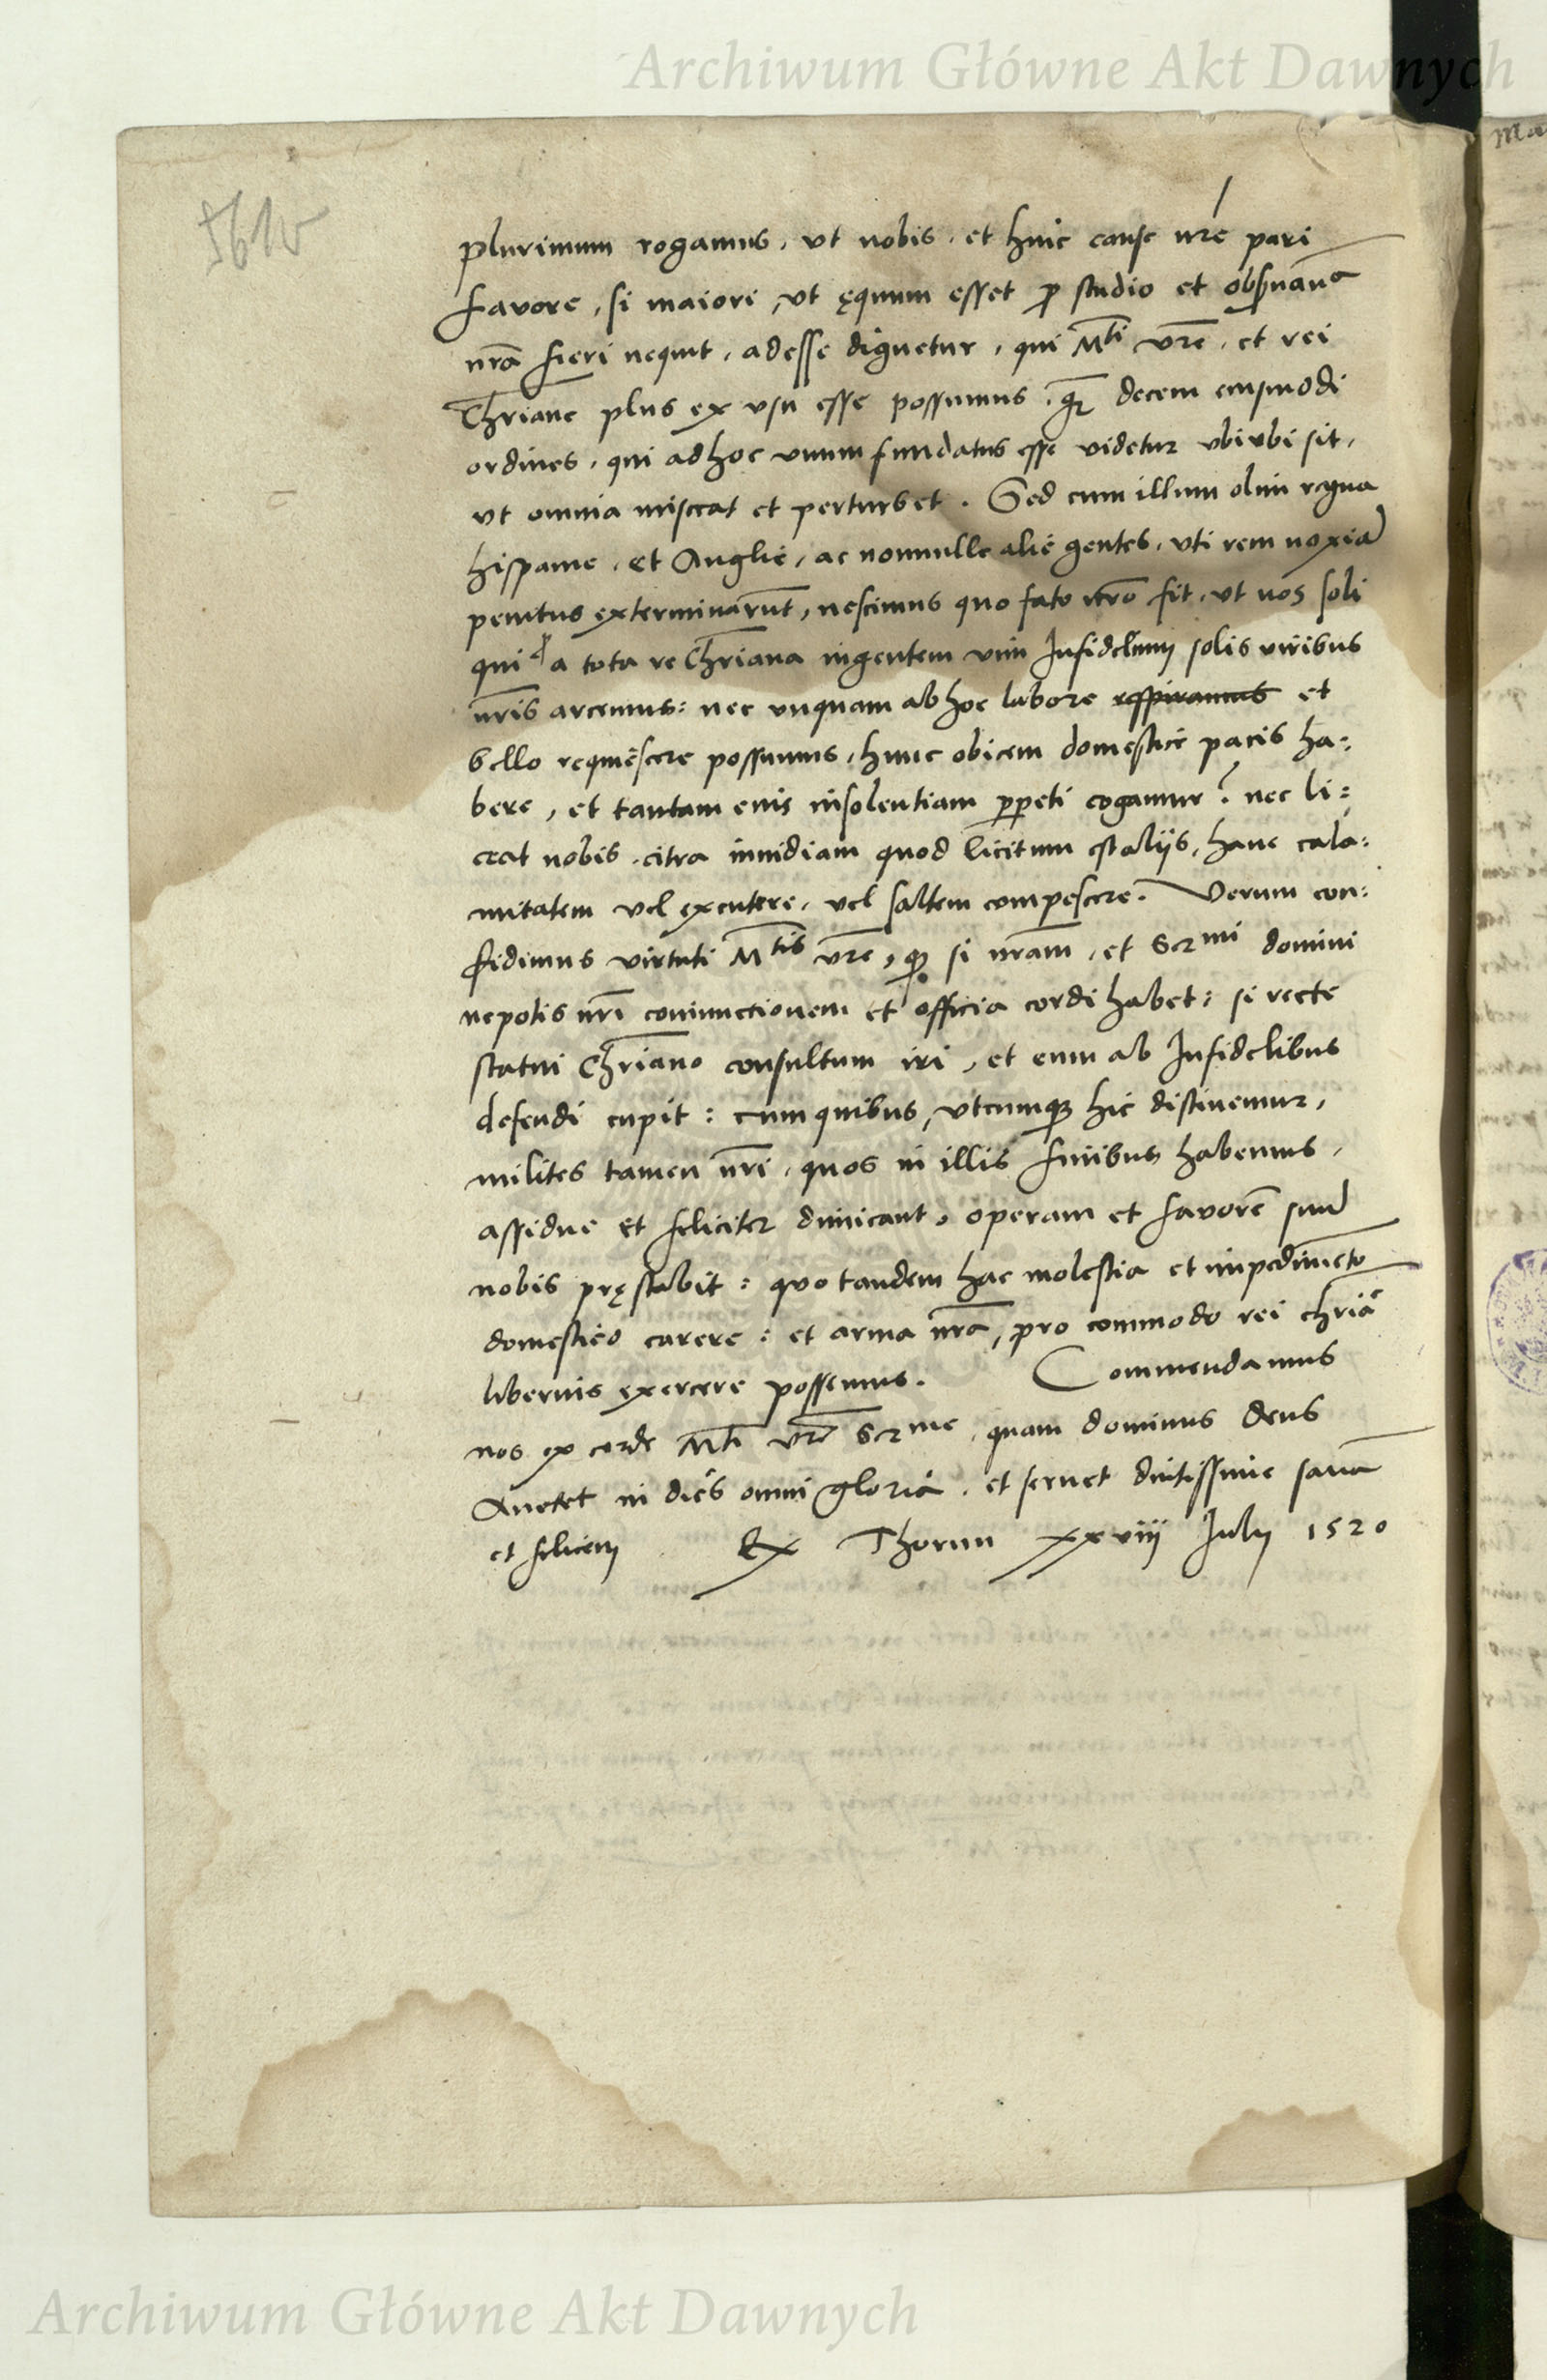 Archiwum Główne Akt Dawnych
plurimum rogamus, ut nobis, et huic cause nre pari
favore, si maiori, ut ęquum esset p studio et obsuanc
nra fieri nequit, adesse dignetur, qui Mti vre, et rei
Chriane plus ex usu esse possumus qz decem eiusmodi
ordines, qui ad hoc unum fundatus esse videtur ubiubi sit,
ut omnia misceat et perturbet. Sed cum illum olim regna
hispanie, et Anglie, ac nonnulle alie gentes, uti rem noxia
penitus exterminarunt, nescimus quo fato nro fit, ut nos soli
qui a tota re Chriana ingentem vim Infidelium solis viribus
nris arcemus: nec unquam ab hoc labore respiramus et
bello requiescere possumus, hunc obicem domestice pacis ha:
bere, et tantam eius insolentiam perpeti cogamur? nec li:
ceat nobis, citra invidiam quod licitum est aliis, hanc cala:
mitatem vel excutere, vel saltem compescere. Verum con:
fidimus virtuti Mtis vre, qz si nram, et Sermi domini
nepotis nri coniunctionem et officia cordi habet: si recte
statui Chriano consultum iri, et eum ab Infidelibus
defendi cupit: cum quibus, utcumqz hic distinemur,
milites tamen nri, quos in illis finibus habemus,
assidue et feliciter dimicant, operam et favore suu
nobis pręstabit: quo tandem hac molestia et impedimeto
domestico carere: et arma nra, pro commodo rei chria
liberius exercere possemus. Commendamus
nos ex corde Mti vre Serme, quam dominus deus
Auctet in dies omni gloria, et servet diutissime sana
et felicem Ex Thorun xxviij July 1520
Archiwum Główne Akt Dawnych